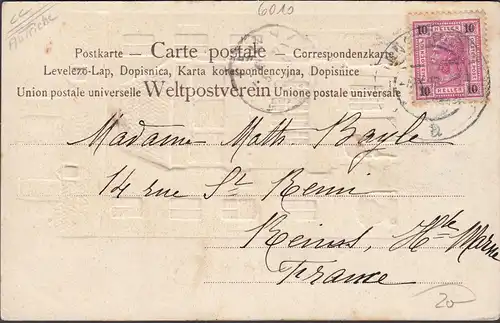 cc
Autriche
6010
Postkarte – Carte postale – Correspondenzkarte
Levelezo-Lap, Dopisnica, Karta korespondencyjna, Dopisnice
Union postale universelle Weltpostverein Unione postale universale
10 HELLER 10
10 HELLER 10
Madame Math Bayle
14 rue St Remi
Reims, Hte Marne
France
20